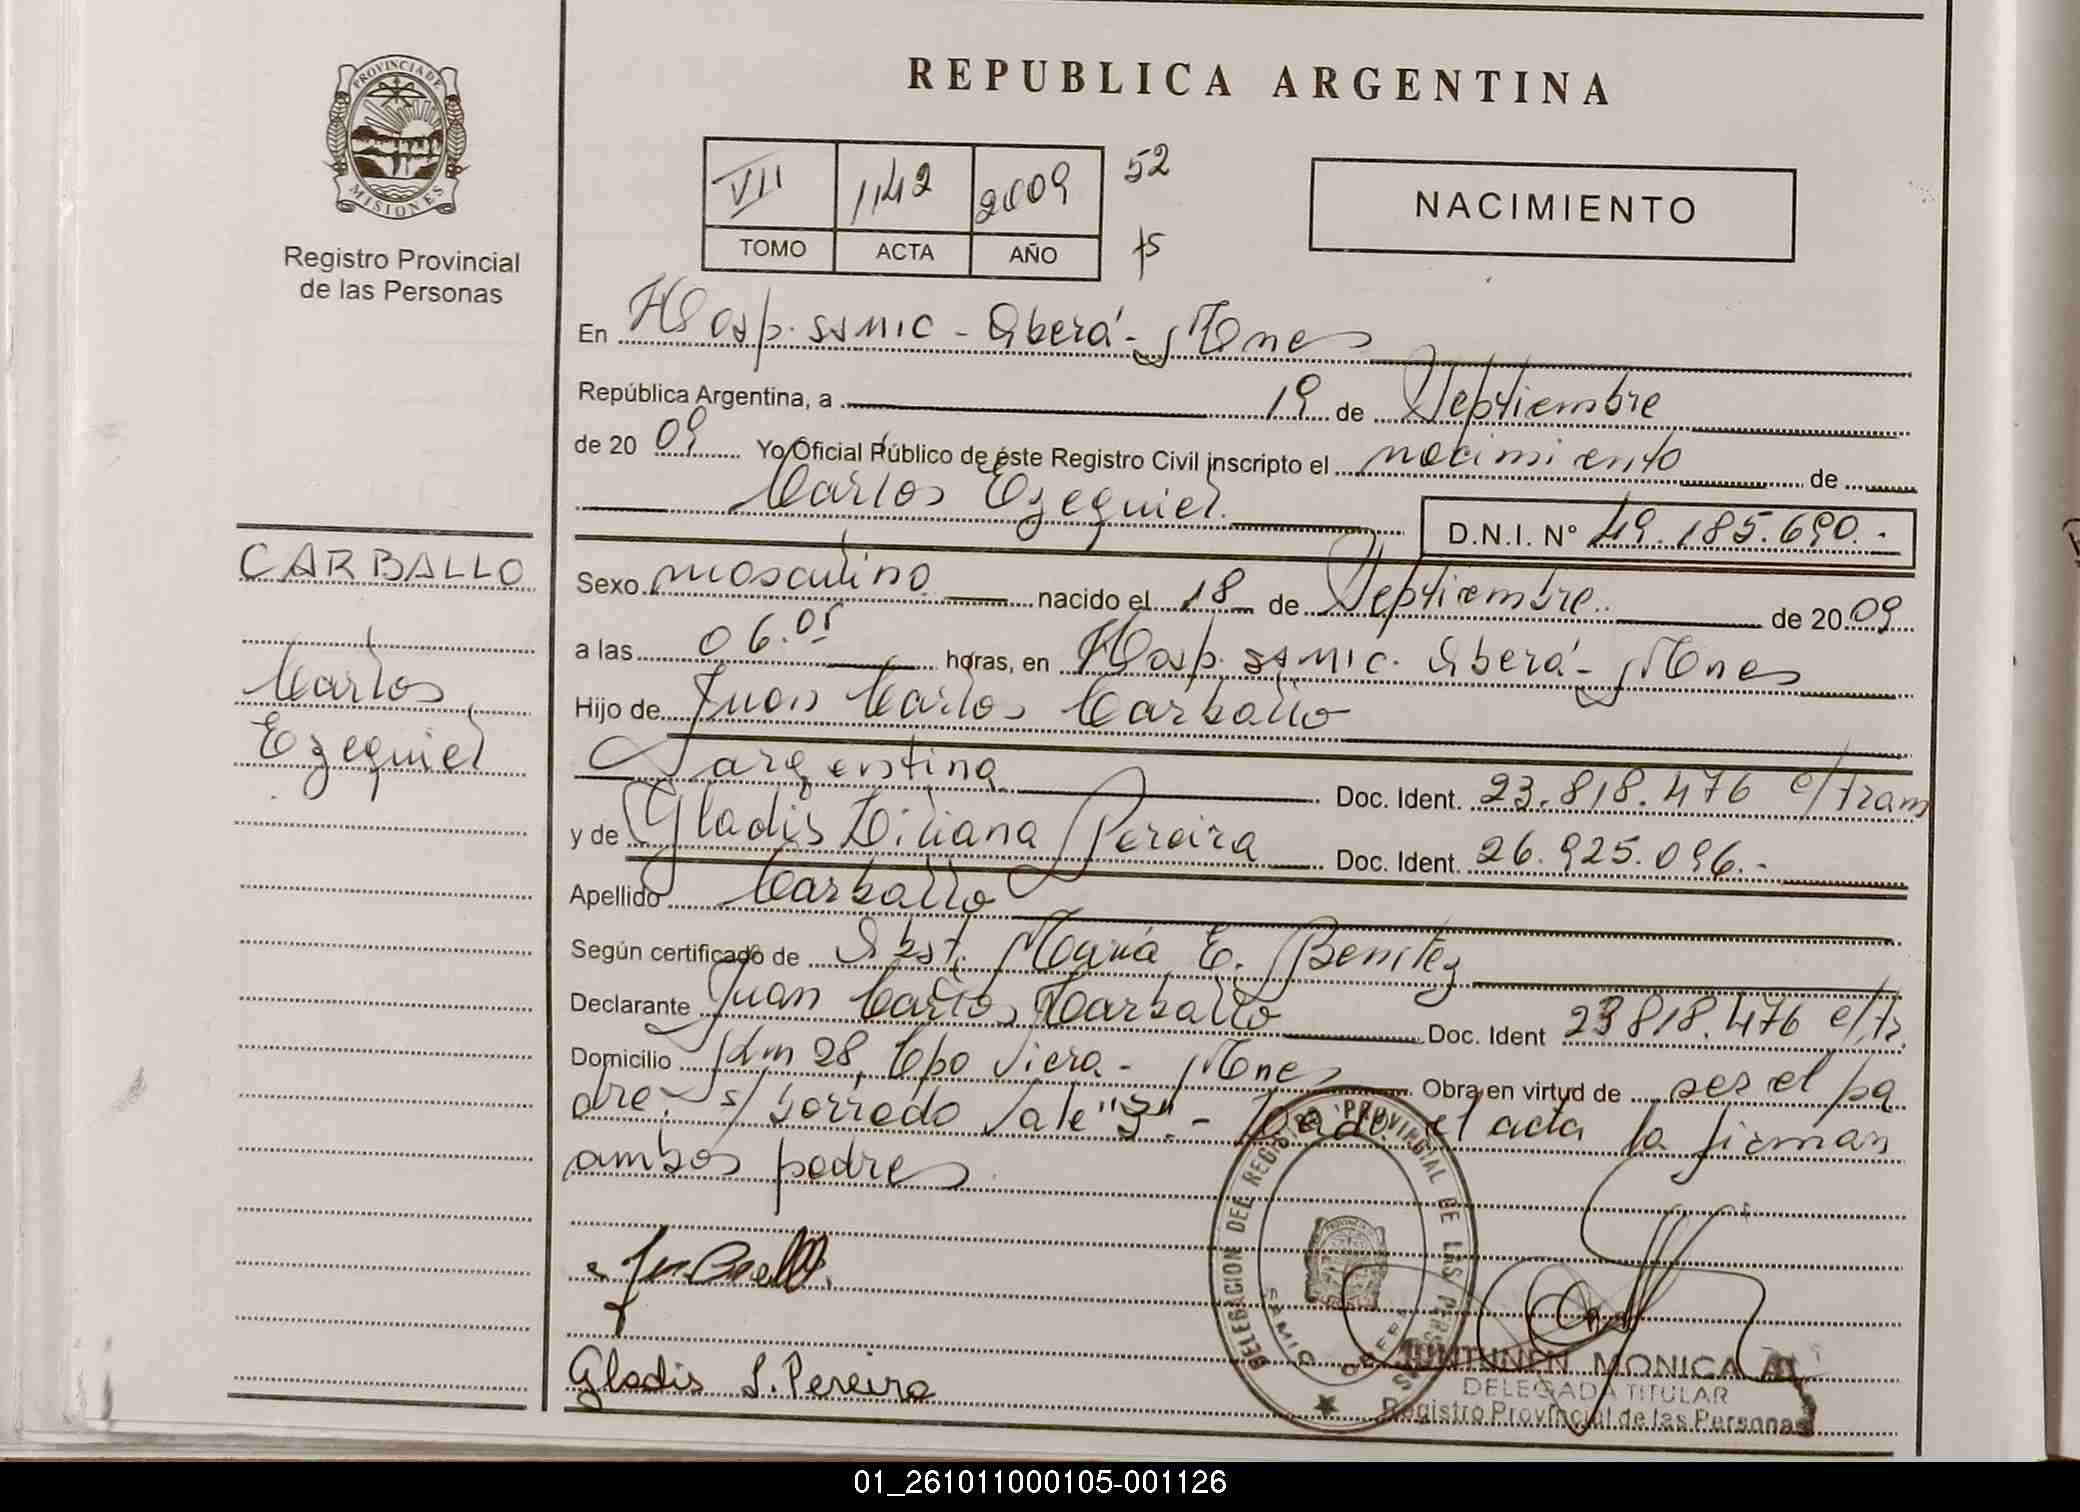 PROVINCIA DE
MISIONES
Registro Provincial
de las Personas
CARBALLO
Carlos
Ezequiel
REPUBLICA ARGENTINA
VII 1142 2009 52
TOMO ACTA AÑO 75
NACIMIENTO
En Hosp. SSMIC - Oberá - Mnes
República Argentina, a 19 de Septiembre
de 2009 Yo Oficial Público de éste Registro Civil inscripto el nacimiento de
Carlos Ezequiel. D.N.I. Nº 49.185.690.-
Sexo masculino nacido el 18 de Septiembre. de 2009
a las 06.05 horas, en Hosp. SSMIC. Oberá - Mnes
Hijo de Juan Carlos Carballo
argentina Doc. Ident. 23.818.476 c/Tram
y de Gladis Liliana Pereira Doc. Ident. 26.925.096.-
Apellido Carballo
Según certificado de Obst. María E. Benitez
Declarante Juan Carlos Carballo Doc. Ident 23818.476 c/Tr.
Domicilio Km 28, Cpo Viera - Mnes Obra en virtud de ser el pa
dre. s/ borrado Vale "3".- el acta la firman
ambos padres
Gladis L. Pereira
DELEGACION DEL REGISTRO PROVINCIAL DE LAS PERSONAS
MONICA
DELEGADA TITULAR
Registro Provincial de las Personas
01_261011000105-001126